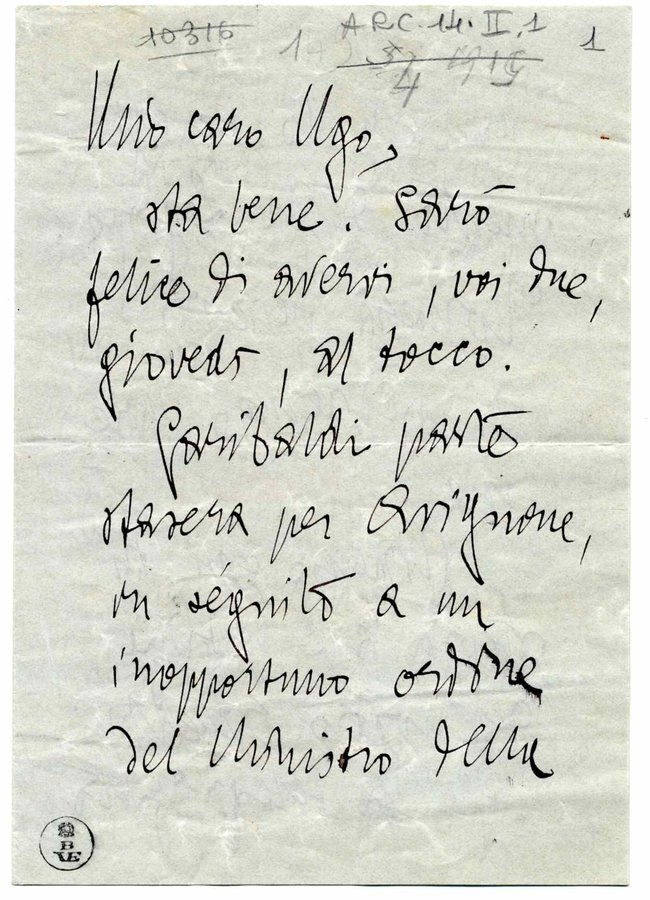 10316
A.R.C. 14. II. 1
1
Mio caro Ugo,
sta bene. Sarò
felice di avervi, voi due,
giovedì, al tocco.
Garibaldi parte
stasera per Avignone,
in séguito a un
inopportuno ordine
del Ministro della
B
VE